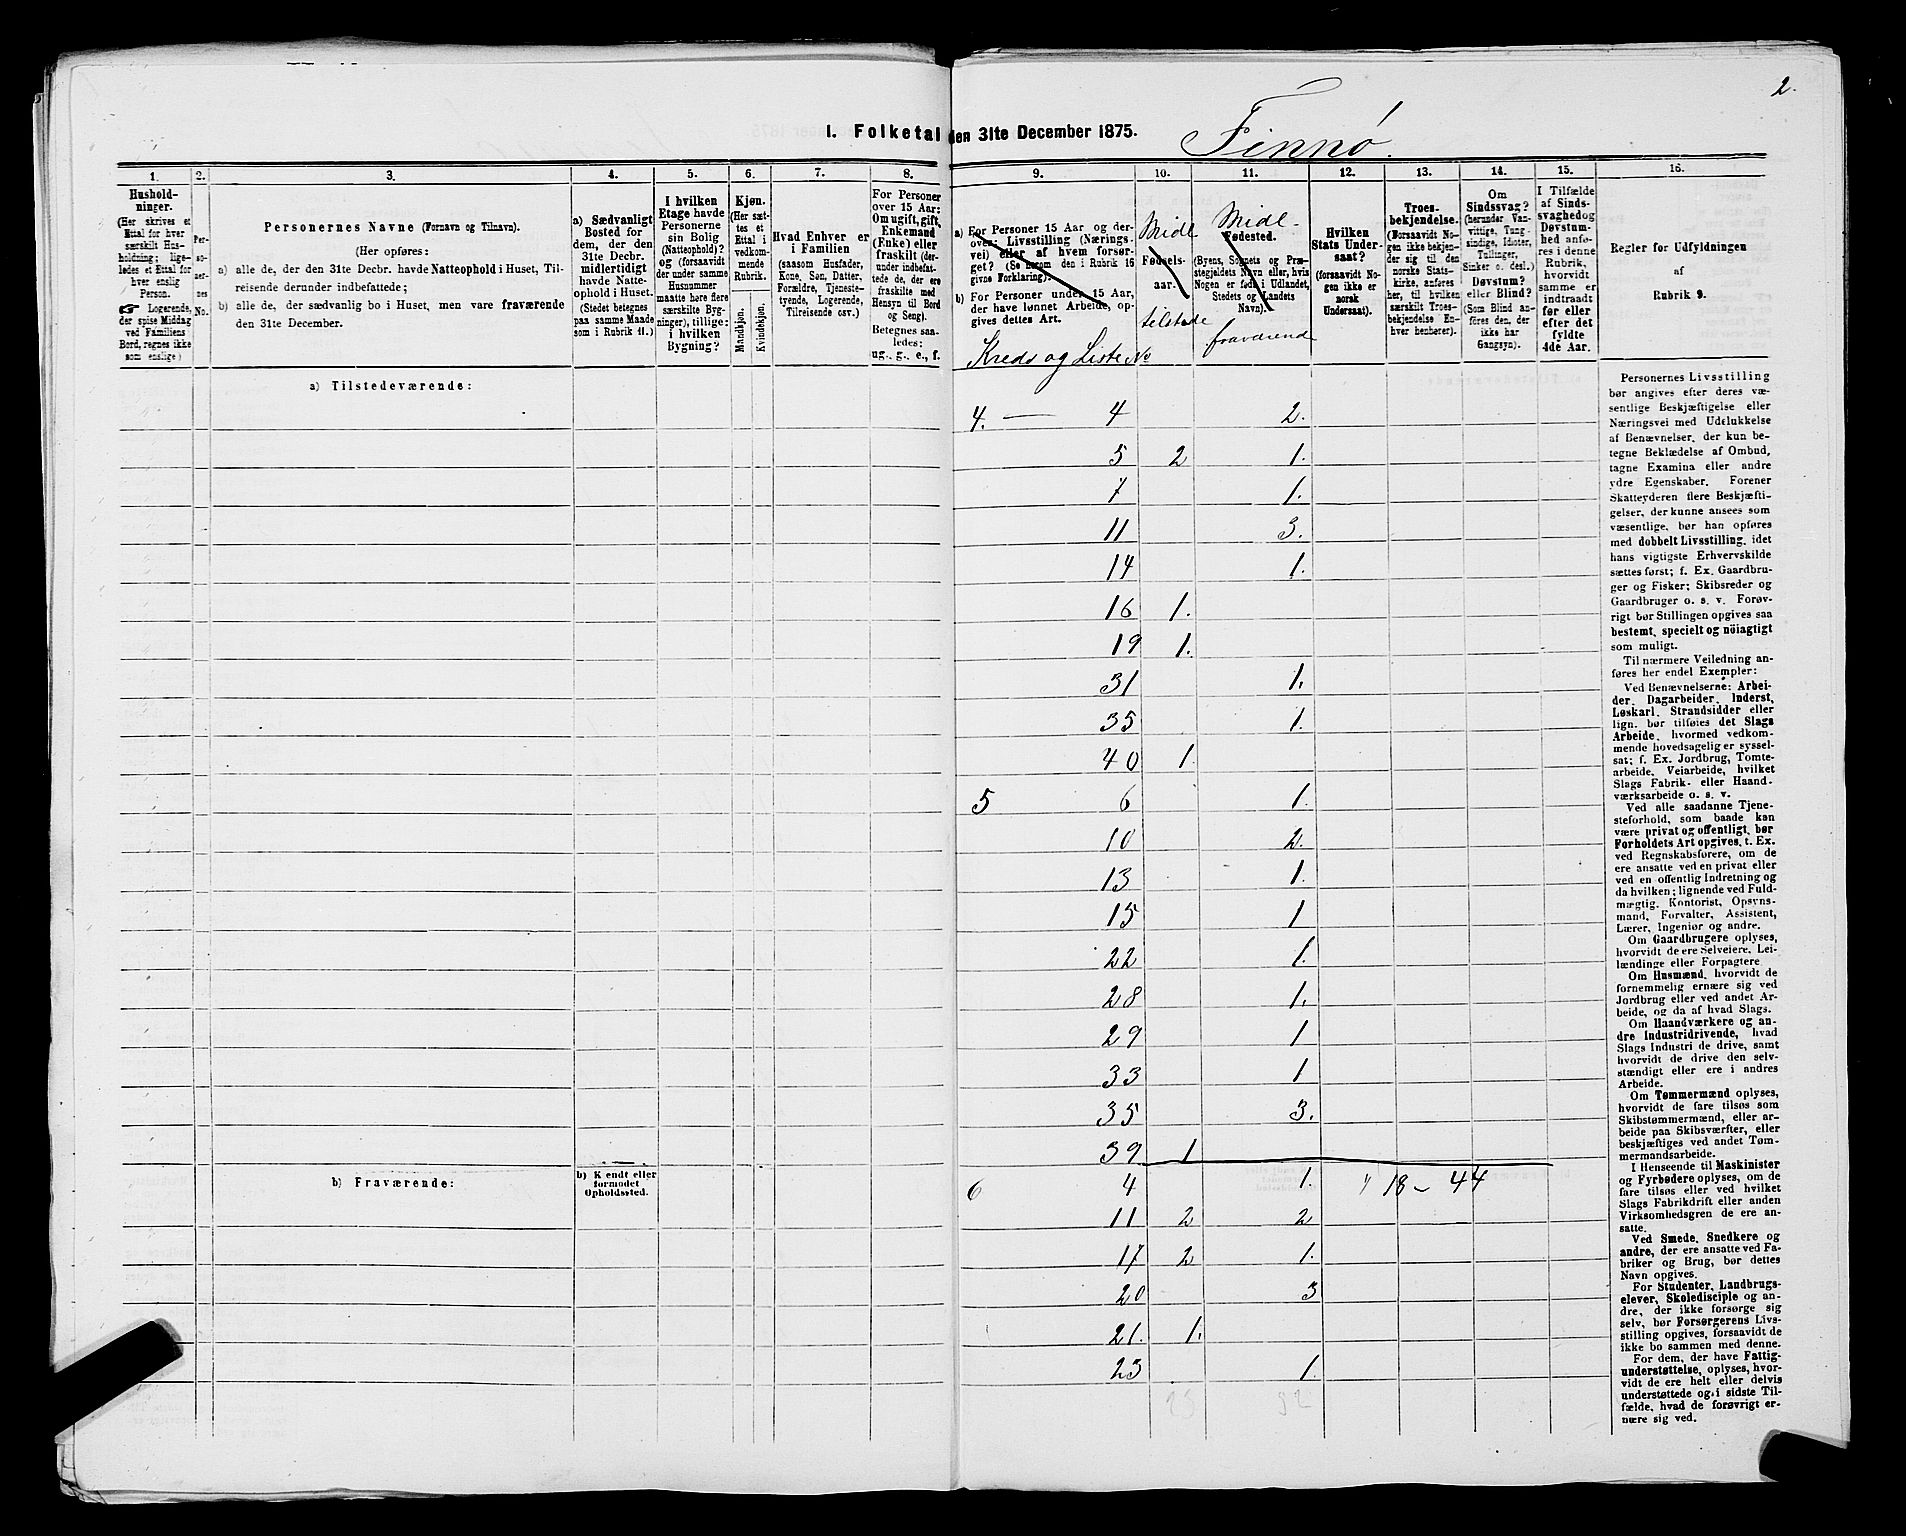 2.
I. Folketal den 31te December 1875.
Finnø.
1. 2. 3. 4. 5. 6. 7. 8. 9. 10. 11. 12. 13. 14. 15. 16.
Hushold-
ninger.
(Her skrives et
Ettal for hver
særskilt Hus-
holdning; lige-
ledes et Ettal for
hver enslig
Person.
☛ Logerende,
der spise Middag
ved Familiens
Bord, regnes ikke
som enslige)
Per-
so-
ner-
nes
No.
Personernes Navne (Fornavn og Tilnavn).
(Her opføres:
a) alle de, der den 31te Decbr. havde Natteophold i Huset, Til-
reisende derunder indbefattede;
b) alle de, der sædvanlig bo i Huset, men vare fraværende
den 31te December.
a) Sædvanligt
Bosted for
dem, der den
31te Decbr.
midlertidigt
havde Natte-
ophold i Huset.
(Stedet betegnes
paa samme Maade
som i Rubrik 11.)
I hvilken
Etage havde
Personerne
sin Bolig
(Natteophold)?
og (forsaavidt
der under samme
Husnummer
maatte høre flere
særskilte Byg-
ninger), tillige:
i hvilken
Bygning?
Kjøn.
(Her sæt-
tes et
Ettal i
vedkom-
mende
Rubrik.
Mandkjøn.
Kvindekjøn.
Hvad Enhver er
i Familien
(saasom Husfader,
Kone, Søn, Datter,
Forældre, Tjeneste-
tyende, Logerende,
Tilreisende osv.)
For Personer
over 15 Aar:
Om ugift, gift,
Enkemand
(Enke) eller
fraskilt (der-
under indbefat-
tede de, der ere
fraskilte med
Hensyn til Bord
og Seng).
Betegnes saa-
ledes:
ug., g., e., f.
a) For Personer 15 Aar og der-
over: Livsstilling (Nærings-
vei) eller af hvem forsør-
get? (Se herom den i Rubrik 16
givne Forklaring).
b) For Personer under 15 Aar,
der have lønnet Arbeide, op-
gives dettes Art.
Kreds og Liste No
Midl
Fødsels-
aar.
tilstede
Midl-
Fødested.
(Byens, Sognets og Præ-
stegjeldets Navn eller, hvis
Nogen er født i Udlandet,
Stedets og Landets
Navn).
fraværende
Hvilken
Stats Under-
saat?
(forsaavidt No-
gen ikke er
norsk
Undersaat).
Troes-
bekjendelse.
(Forsaavidt No-
gen ikke bekjen-
der sig til den
norske Stats-
kirke, anføres
her, til hvilken
særskilt Troes-
bekjendelse En-
hver henhører).
Om
Sindssvag?
(herunder Van-
vittige, Tung-
sindige, Idioter,
Tullinger,
Sinker o. desl.)
Døvstum?
eller Blind?
(Som Blind an-
føres den, der
ikke har
Gangsyn).
I Tilfælde
af Sinds-
svaghed og
Døvstum-
hed anfø-
res i denne
Rubrik,
hvorvidt
samme er
indtraadt
før eller
efter det
fyldte
4de Aar.
Regler for Udfyldningen
af
Rubrik 9.
a) Tilstedeværende:
4. — 4 2.
5 2 1.
7 1.
11 3.
14 1.
16 1.
19 1.
31 1.
35 1.
40 1.
5 6 1.
10 2.
13 1.
15 1
22 1.
28 1.
29 1
33 1
35 3.
39 1
b) Fraværende:
b) Kjendt eller
formodet
Opholdssted.
6 4 1. 18 - 44
11 2 2
17 2 1.
20 3
21. 1.
23 1.
Personernes Livsstilling
bør angives efter deres væ-
sentlige Beskjæftigelse eller
Næringsvei med Udelukkelse
af Benævnelser, der kun be-
tegne Beklædelse af Ombud,
tagne Examina eller andre
ydre Egenskaber. Forener
Skatteyderen flere Beskjæfti-
gelser, der kunne ansees som
væsentlige, bør han opføres
med dobbelt Livsstilling, idet
hans vigtigste Erhvervskilde
sættes først; f. Ex. Gaardbru-
ger og Fisker; Skibsreder og
Gaardbruger o. s. v. Forøv-
rigt bør Stillingen opgives saa
bestemt, specielt og nöiagtigt
som muligt.
Til nærmere Veiledning an-
føres her endel Exempler:
Ved Benævnelserne: Arbei-
der, Dagarbeider, Inderst,
Løskarl, Strandsidder eller
lign. bør tilføies det Slags
Arbeide, hvormed vedkom-
mende hovedsagelig er syssel-
sat; f. Ex. Jordbrug, Tomte-
arbeide, Veiarbeide, hvilket
Slags Fabrik- eller Haand-
værksarbeide o. s. v.
Ved alle saadanne Tjene-
steforhold, som baade kan
være privat og offentligt, bør
Forholdets Art opgives, t. Ex.
ved Regnskabsførere, om de
ere ansatte ved en privat eller
ved en offentlig Indretning og
da hvilken; lignende ved Fuld-
mægtig, Kontorist, Opsyns-
mand, Forvalter, Assistent,
Lærer, Ingeniør og andre.
Om Gaardbrugere oplyses,
hvorvidt de ere Selveiere, Lei-
lændinge eller Forpagtere.
Om Husmænd, hvorvidt de
fornemmelig ernære sig ved
Jordbrug eller ved andet Ar-
beide, og da af hvad Slags.
Om Haandværkere og an-
dre Industridrivende, hvad
Slags Industri de drive, samt
hvorvidt de drive den selv-
stændigt eller ere i andres
Arbeide.
Om Tømmermænd oplyses,
hvorvidt de fare tilsøs som
Skibstømmermænd, eller ar-
beide paa Skibsværfter, eller
beskjæftiges ved andet Tøm-
mermandsarbeide.
I Henseende til Maskinister
og Fyrbødere oplyses, om de
fare tilsøs eller ved hvilket
Slags Fabrikdrift eller anden
Virksomhedsgren de ere an-
satte.
Ved Smede, Snedkere og
andre, der ere ansatte ved Fa-
briker og Brug, bør dettes
Navn opgives.
For Studenter, Landbrugs-
elever, Skoledisciple og an-
dre, der ikke forsørge sig
selv, bør Forsørgerens Livs-
stilling opgives, forsaavidt de
ikke bo sammen med denne.
For dem, der have Fattig-
understøttelse, oplyses, hvor-
vidt de ere helt eller delvis
understøttede og i sidste Til-
fælde, hvad de forøvrigt er-
nære sig ved.